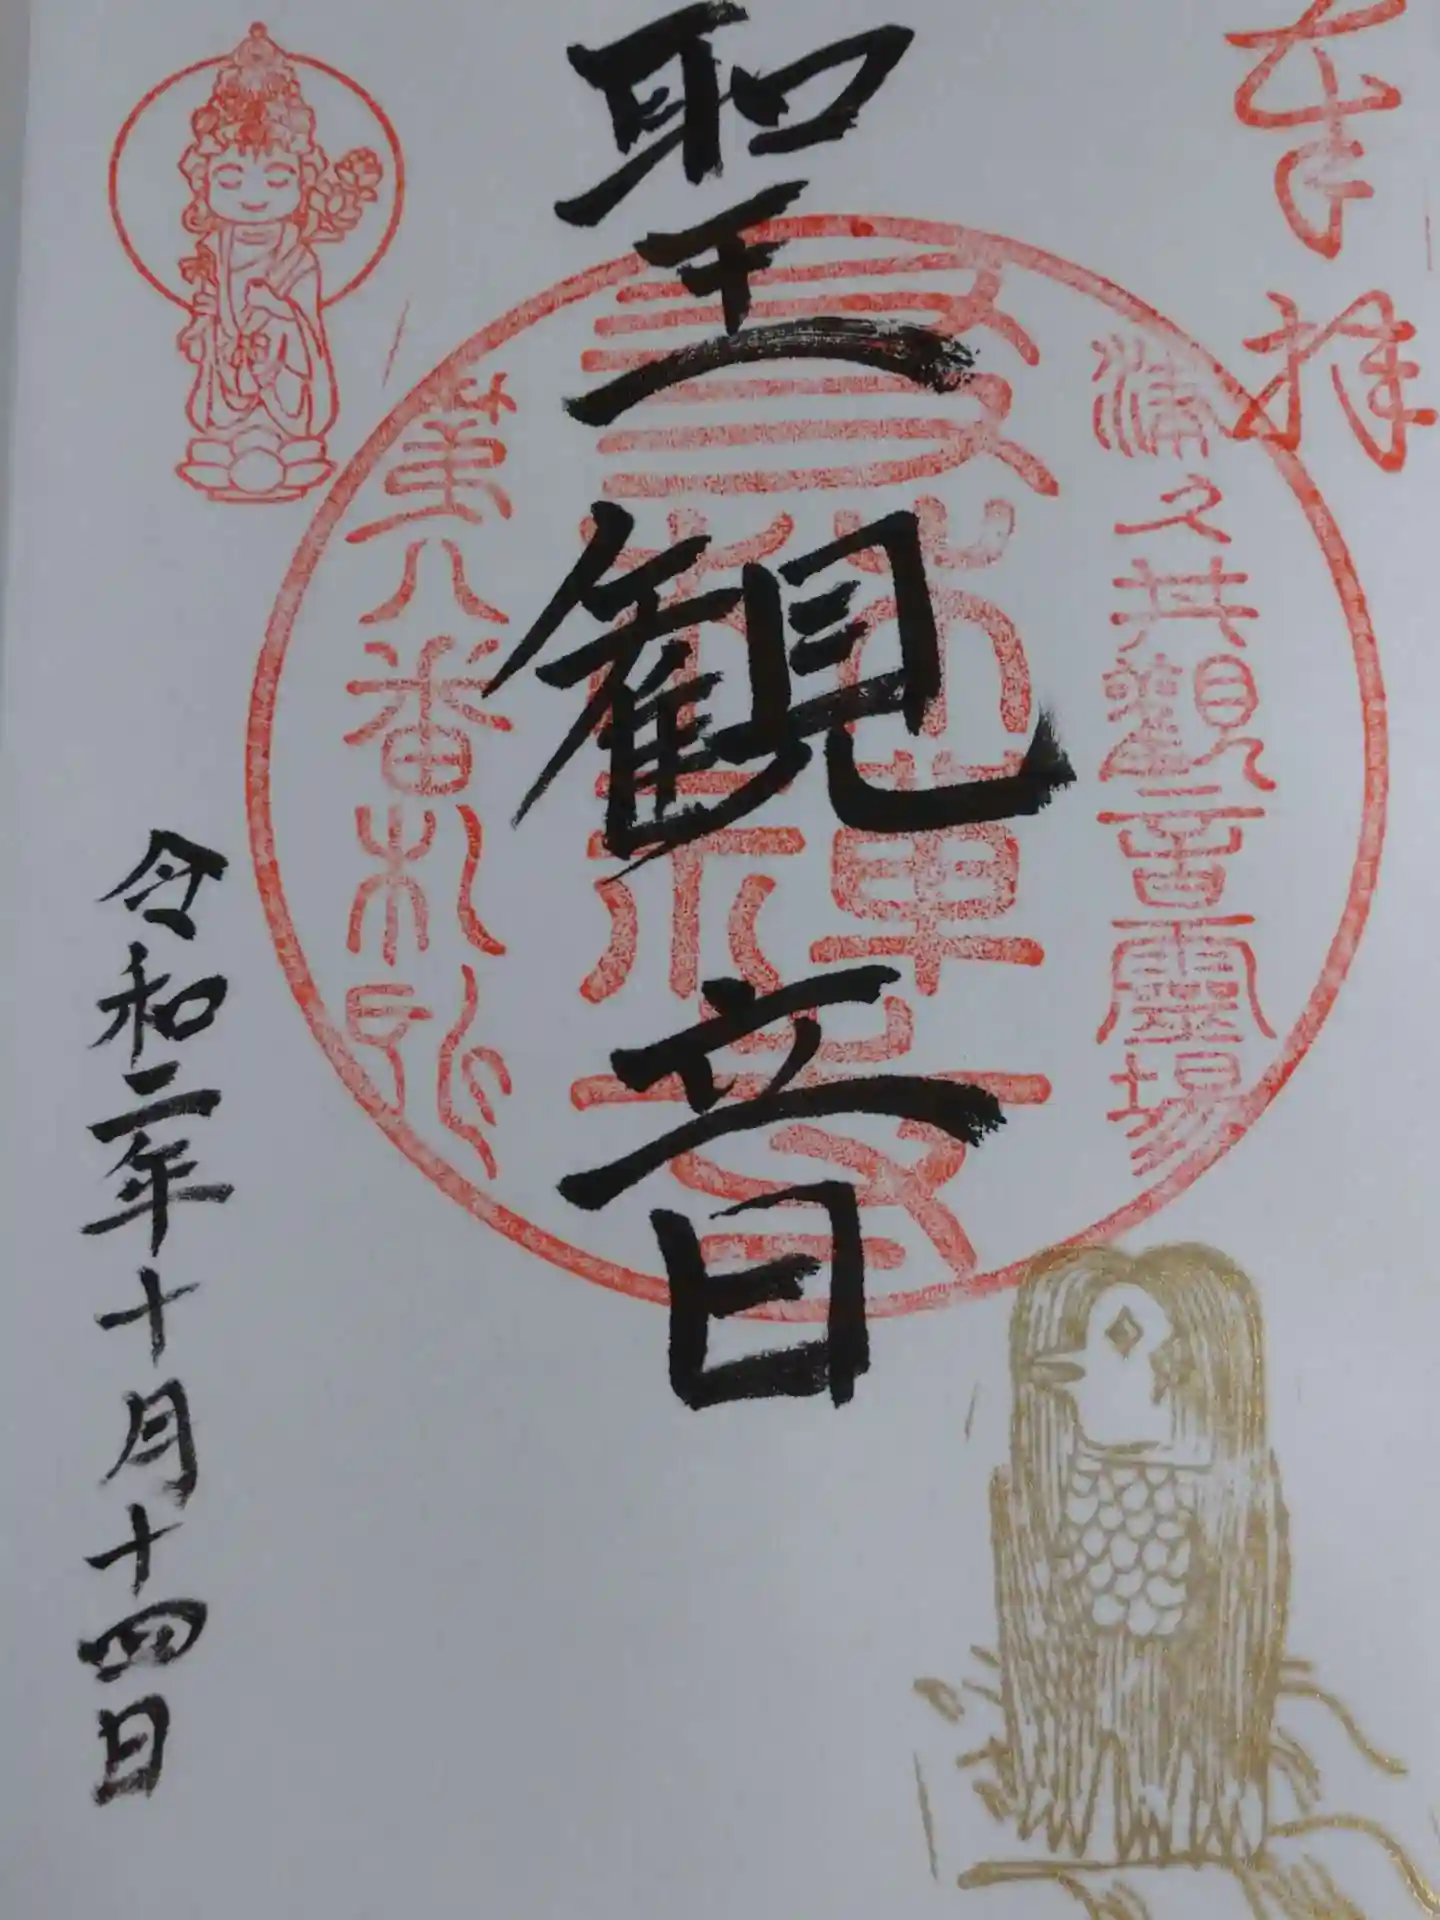 奉拝
湊之井観音霊場
聖観音
第八番札所
令和二年十月十四日